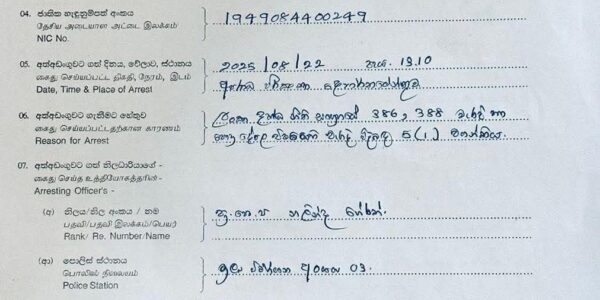 04. ජාතික හැඳුනුම්පත් අංකය
தேசிய அடையாள அட்டை இலக்கம்
NIC No.
194908440 0249
05. අත්අඩංගුවට ගත් දිනය, වේලාව, ස්ථානය
கைது செய்யப்பட்ட திகதி, நேரம், இடம்
Date, Time & Place of Arrest
2025/08/22 පැය. 13.10
අපරාධ පරීක්ෂණ දෙපාර්තමේන්තුව
06. අත්අඩංගුවට ගැනීමට හේතුව
கைது செய்யப்பட்டதற்கான காரணம்
Reason for Arrest
දණ්ඩ නීති සංග්‍රහයේ 386, 388 වැරදි හා
පොදු දේපල පිළිබඳ වැරදි 5(1) වගන්තිය.
07. අත්අඩංගුවට ගත් නිලධාරියාගේ -
கைது செய்த உத்தியோகத்தரின் -
Arresting Officer's -
(අ) නිලය/නිල අංකය / නම
பதவி/பதவி இலக்கம்/பெயர்
Rank/ Re. Number/Name
ප්‍ර.පො.ප
(ආ) පොලිස් ස්ථානය
பொலிஸ் நிலையம்
Police Station
විමර්ශන අංශය 03.